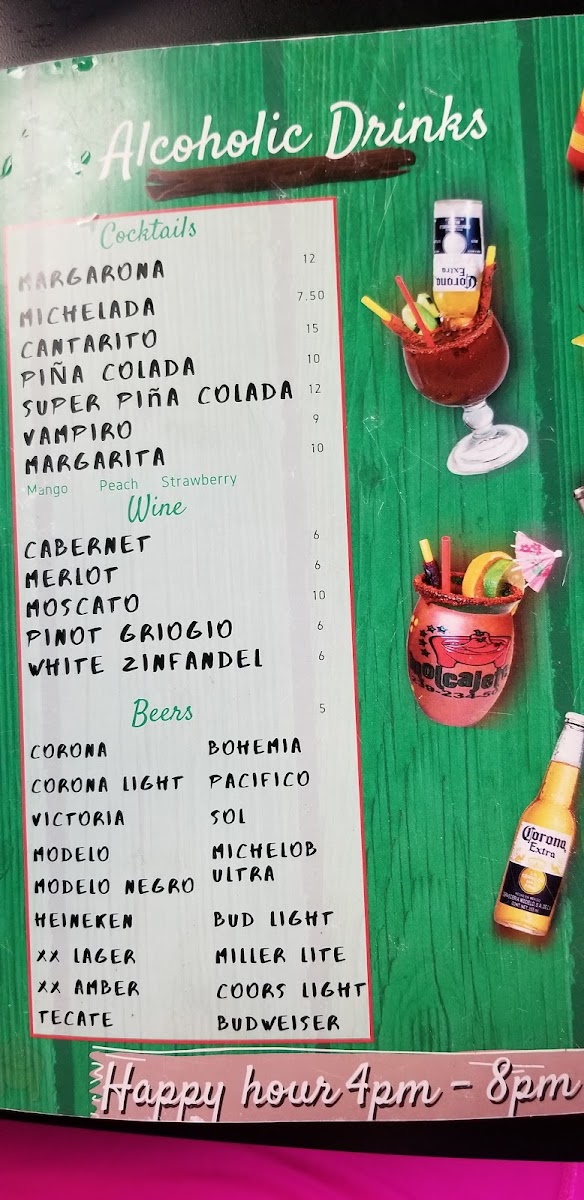 Alcoholic Drinks
Cocktails
MARGARONA 12
MICHELADA 7.50
CANTARITO 15
PIÑA COLADA 10
SUPER PIÑA COLADA 12
VAMPIRO 9
MARGARITA 10
Mango Peach Strawberry
Wine
CABERNET 6
MERLOT 6
MOSCATO 10
PINOT GRIOGIO 6
WHITE ZINFANDEL 6
Beers 5
CORONA BOHEMIA
CORONA LIGHT PACIFICO
VICTORIA SOL
MODELO MICHELOB
ULTRA
MODELO NEGRO
HEINEKEN BUD LIGHT
XX LAGER MILLER LITE
XX AMBER COORS LIGHT
TECATE BUDWEISER
Corona
Extra
molcajete
Corona
Extra
Happy hour 4pm - 8pm